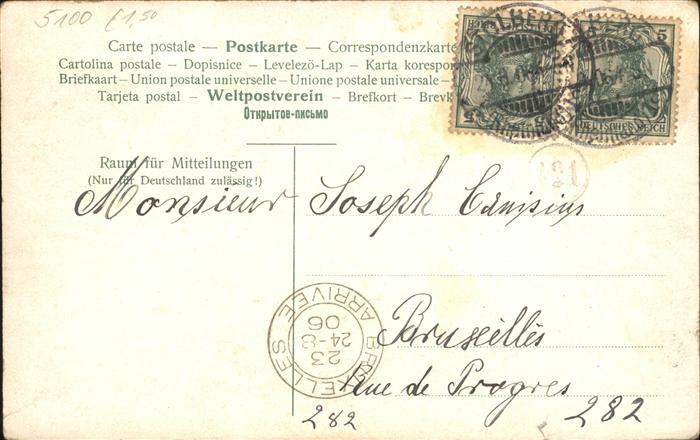 5100 €1,50
Carte postale — Postkarte — Correspondenzkarte
Cartolina postale — Dopisnice — Levelező-Lap — Karta korespon
Briefkaart — Union postale universelle — Unione postale universale —
Tarjeta postal — Weltpostverein — Brefkort — Brevk
Открытое-письмо
DEUTSCHES REICH
5
5
121
Raum für Mitteilungen
(Nur für Deutschland zulässig!)
Monsieur Joseph Canisius
Bruxelles
Rue de Progres
282
282
BRUXELLES ARRIVEE
23
24-8
06